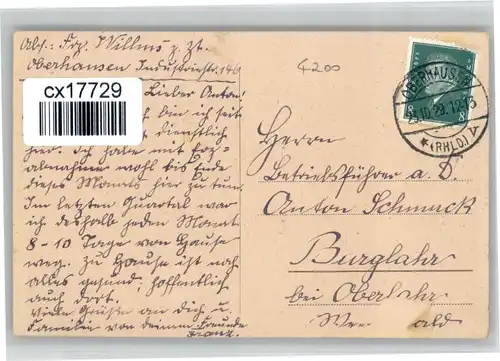 Abs.: Frz. Willms z. Zt.
Oberhausen Industriestr. 146
4200
cx17729
Lieber Anton!
bin ich seit
dienstlich
hier. Ich habe mit
wohl bis Ende
dieses Monats hier zu tun.
Im letzten Quartal war
ich deshalb jeden Monat
8-10 Tage von Hause
weg. Zu Hause ist noch
alles gesund. Hoffentlich
auch dort.
Viele Grüße an Dich u.
Familie von deinem Freunde
Franz.
OBERHAUSEN
10.29.12-13
* (RHLD)
8
Herrn
Betriebsführer a. D.
Anton Schmuck
Burglahr
bei Oberlahr